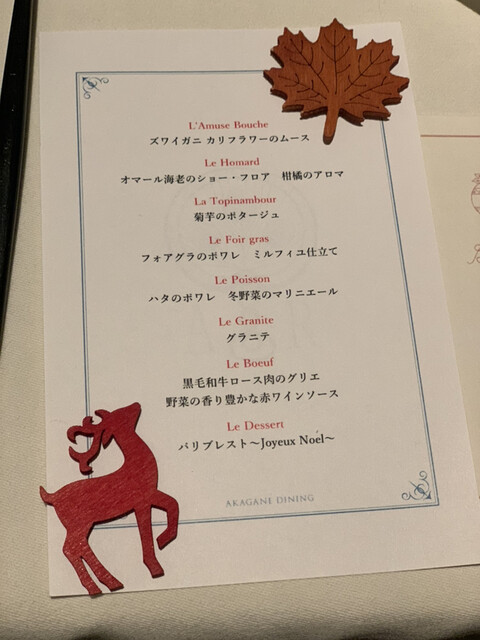 L'Amuse Bouche
ズワイガニ カリフラワーのムース
Le Homard
オマール海老のショー・フロア　柑橘のアロマ
La Topinambour
菊芋のポタージュ
Le Foir gras
フォアグラのポワレ　ミルフィユ仕立て
Le Poisson
ハタのポワレ　冬野菜のマリニエール
Le Granite
グラニテ
Le Boeuf
黒毛和牛ロース肉のグリエ
野菜の香り豊かな赤ワインソース
Le Dessert
パリブレスト～Joyeux Noël～
AKAGANE DINING